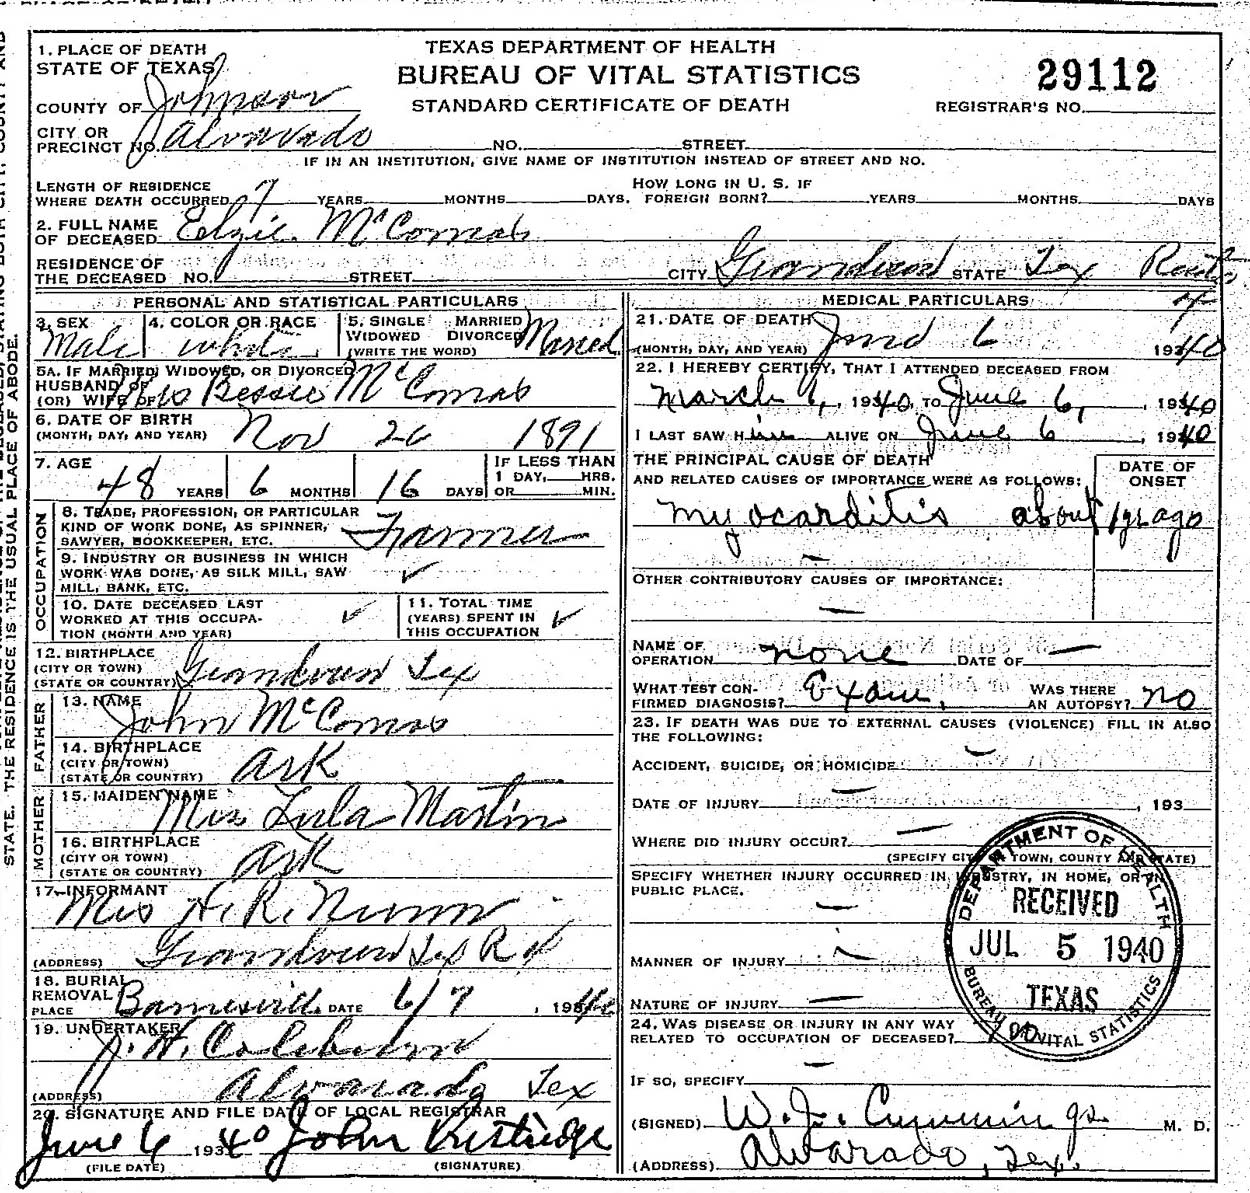 TEXAS DEPARTMENT OF HEALTH
BUREAU OF VITAL STATISTICS
STANDARD CERTIFICATE OF DEATH
29112
REGISTRAR'S NO.
1. PLACE OF DEATH
STATE OF TEXAS
COUNTY OF Johnson
CITY OR
PRECINCT NO. Alvarado NO. STREET
IF IN AN INSTITUTION, GIVE NAME OF INSTITUTION INSTEAD OF STREET AND NO.
LENGTH OF RESIDENCE
WHERE DEATH OCCURRED 7 YEARS MONTHS DAYS.
HOW LONG IN U. S. IF
FOREIGN BORN? YEARS MONTHS DAYS
2. FULL NAME
OF DECEASED Elzie McComas
RESIDENCE OF
THE DECEASED NO. STREET CITY Grandview STATE Tex Route
4
PERSONAL AND STATISTICAL PARTICULARS
3. SEX
Male
4. COLOR OR RACE
White
5. SINGLE MARRIED
WIDOWED DIVORCED
(WRITE THE WORD)
Married
5A. IF MARRIED, WIDOWED, OR DIVORCED
HUSBAND OF
(OR) WIFE OF Mrs Bessie McComas
6. DATE OF BIRTH
(MONTH, DAY, AND YEAR) Nov 26 1891
7. AGE
48 YEARS 6 MONTHS 16 DAYS
IF LESS THAN
1 DAY, HRS.
OR MIN.
OCCUPATION
8. TRADE, PROFESSION, OR PARTICULAR
KIND OF WORK DONE, AS SPINNER,
SAWYER, BOOKKEEPER, ETC. Farmer
9. INDUSTRY OR BUSINESS IN WHICH
WORK WAS DONE, AS SILK MILL, SAW
MILL, BANK, ETC. ✓
10. DATE DECEASED LAST
WORKED AT THIS OCCUPA-
TION (MONTH AND YEAR) ✓
11. TOTAL TIME
(YEARS) SPENT IN
THIS OCCUPATION ✓
12. BIRTHPLACE
(CITY OR TOWN)
(STATE OR COUNTRY) Grandview Tex
FATHER
13. NAME
John McComas
14. BIRTHPLACE
(CITY OR TOWN)
(STATE OR COUNTRY) Ark
MOTHER
15. MAIDEN NAME
Miss Lula Martin
16. BIRTHPLACE
(CITY OR TOWN)
(STATE OR COUNTRY) Ark
17. INFORMANT
Mrs H. R. Nunn
(ADDRESS) Grandview Tex R 4
18. BURIAL
REMOVAL
PLACE DATE 6/7, 1940
19. UNDERTAKER
J. H.
(ADDRESS) Alvarado Tex
20. SIGNATURE AND FILE DATE OF LOCAL REGISTRAR
June 6 1940 John
(FILE DATE) (SIGNATURE)
MEDICAL PARTICULARS
21. DATE OF DEATH
(MONTH, DAY, AND YEAR) June 6 1940
22. I HEREBY CERTIFY, THAT I ATTENDED DECEASED FROM
March 6, 1940, TO June 6, 1940
I LAST SAW H im ALIVE ON June 6, 1940
THE PRINCIPAL CAUSE OF DEATH
AND RELATED CAUSES OF IMPORTANCE WERE AS FOLLOWS:
DATE OF
ONSET
myocarditis about 1 yr ago
OTHER CONTRIBUTORY CAUSES OF IMPORTANCE:
NAME OF
OPERATION none DATE OF —
WHAT TEST CON-
FIRMED DIAGNOSIS? Exam.
WAS THERE
AN AUTOPSY? no
23. IF DEATH WAS DUE TO EXTERNAL CAUSES (VIOLENCE) FILL IN ALSO
THE FOLLOWING:
ACCIDENT, SUICIDE, OR HOMICIDE —
DATE OF INJURY —, 193
WHERE DID INJURY OCCUR? —
(SPECIFY CITY, TOWN, COUNTY AND STATE)
SPECIFY WHETHER INJURY OCCURRED IN INDUSTRY, IN HOME, OR IN
PUBLIC PLACE.
—
MANNER OF INJURY
NATURE OF INJURY —
24. WAS DISEASE OR INJURY IN ANY WAY
RELATED TO OCCUPATION OF DECEASED? no
IF SO, SPECIFY
(SIGNED) W. J. Cummings M. D.
(ADDRESS) Alvarado, Tex.
DEPARTMENT OF HEALTH
RECEIVED
JUL 5 1940
TEXAS
BUREAU OF VITAL STATISTICS
STATE. THE RESIDENCE IS THE USUAL PLACE OF ABODE.